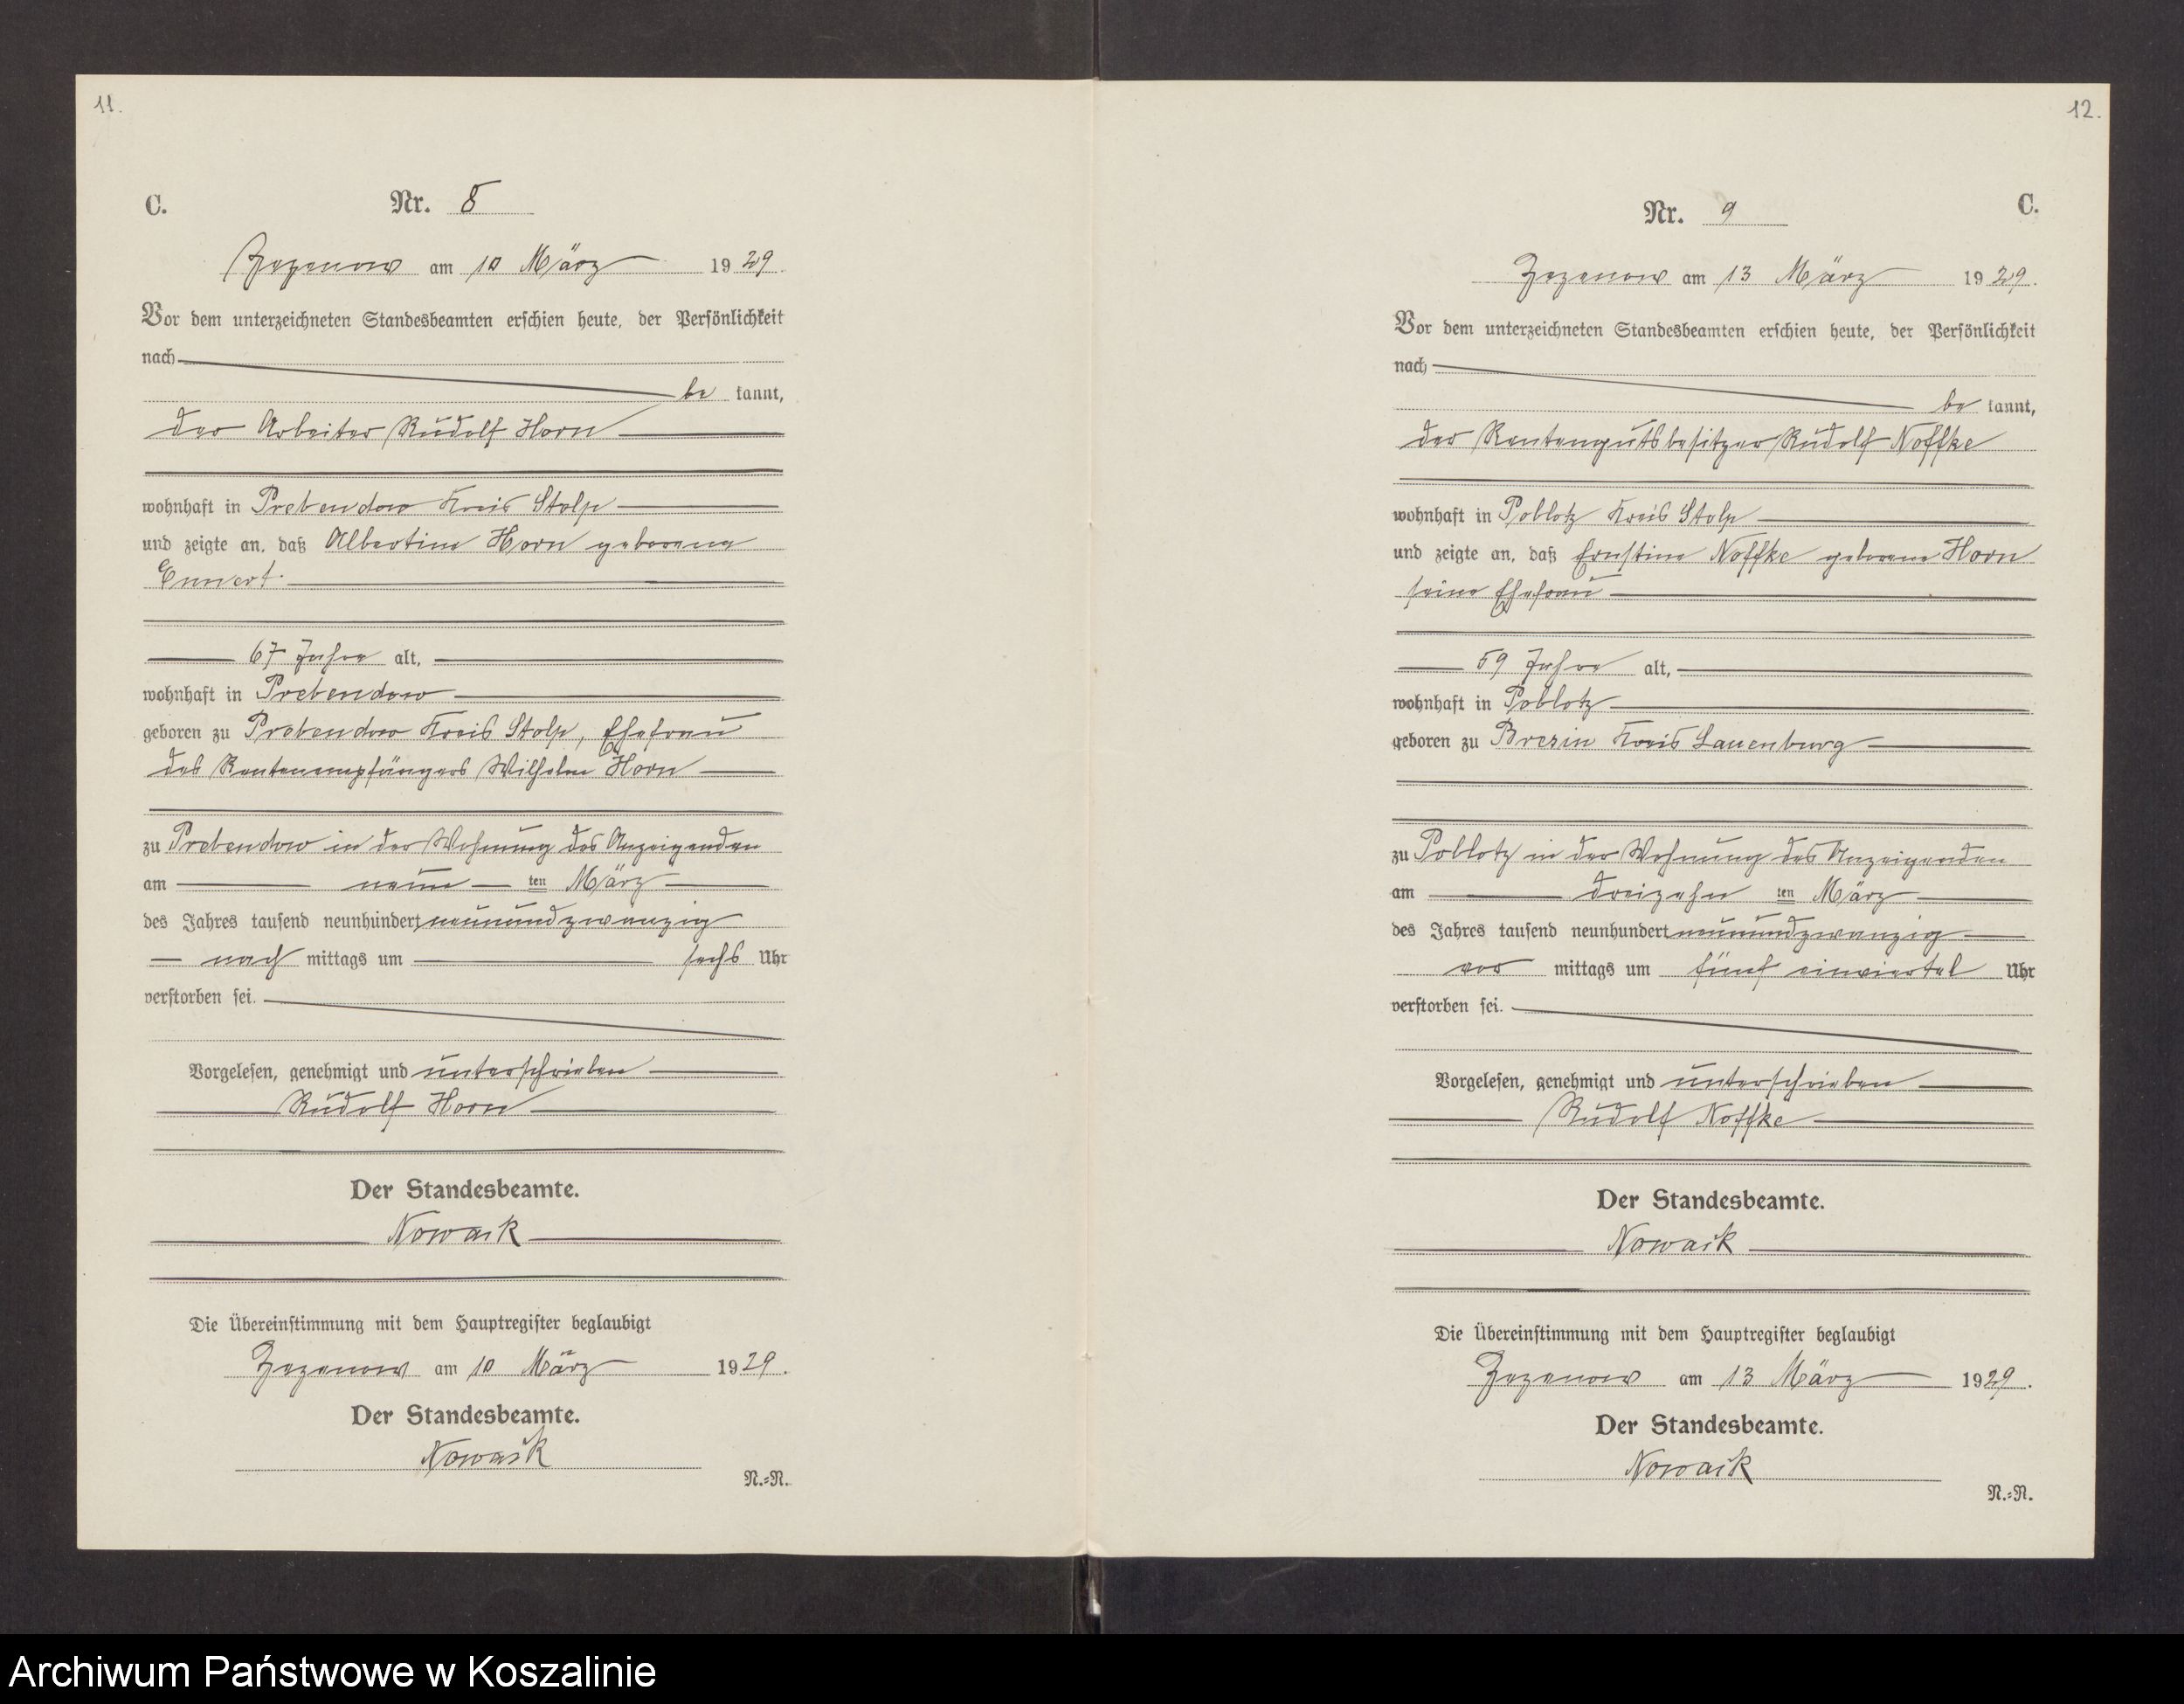 11.
C.
Nr. 8
Zezenow am 10 März 1929.
Vor dem unterzeichneten Standesbeamten erschien heute, der Persönlichkeit
nach
be kannt,
der Arbeiter Rudolf Horn
wohnhaft in Prebendow Kreis Stolp
und zeigte an, daß Albertine Horn geborene
Ennert
67 Jahre alt,
wohnhaft in Prebendow
geboren zu Prebendow Kreis Stolp, Ehefrau
des Rentenempfängers Wilhelm Horn
zu Prebendow in der Wohnung des Anzeigenden
am neun ten März
des Jahres tausend neunhundert neunundzwanzig
nach mittags um sechs Uhr
verstorben sei.
Vorgelesen, genehmigt und unterschrieben
Rudolf Horn
Der Standesbeamte.
Nowack
Die Übereinstimmung mit dem Hauptregister beglaubigt
Zezenow am 10 März 1929.
Der Standesbeamte.
Nowack
N.=N.
12.
C.
Nr. 9
Zezenow am 13 März 1929.
Vor dem unterzeichneten Standesbeamten erschien heute, der Persönlichkeit
nach
be kannt,
der Rentengutsbesitzer Rudolf Noffke
wohnhaft in Poblotz Kreis Stolp
und zeigte an, daß Ernstine Noffke geborene Horn
seine Ehefrau
59 Jahre alt,
wohnhaft in Poblotz
geboren zu Bresin Kreis Lauenburg
zu Poblotz in der Wohnung des Anzeigenden
am dreizehn ten März
des Jahres tausend neunhundert neunundzwanzig
vor mittags um fünf einviertel Uhr
verstorben sei.
Vorgelesen, genehmigt und unterschrieben
Rudolf Noffke
Der Standesbeamte.
Nowack
Die Übereinstimmung mit dem Hauptregister beglaubigt
Zezenow am 13 März 1929.
Der Standesbeamte.
Nowack
N.=N.
Archiwum Państwowe w Koszalinie